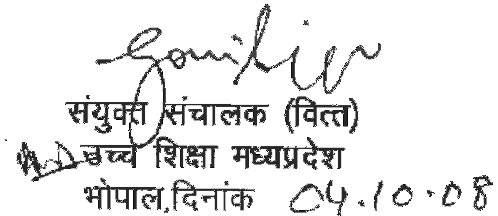 संयुक्त संचालक (वित्त)
उच्च शिक्षा मध्यप्रदेश
भोपाल,दिनांक 04.10.08